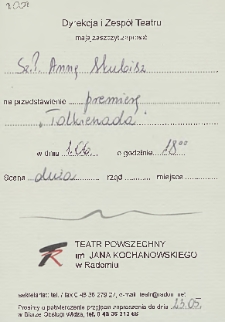 Dyrekcja i Zespół Teatru
mają zaszczyt zaprosić
Sz.P. Annę Skubisz
na przedstawienie premierę
"Tolkienada"
w dniu 1.06 o godzinie 18⁰⁰
Scena duża rząd miejsce
TEATR POWSZECHNY
im. JANA KOCHANOWSKIEGO
w Radomiu
sekretariat: tel. / fax
Prosimy o potwierdzenie przyjęcia zaproszenia do dnia 25.05.
w Biurze Obsługi Widza, tel.